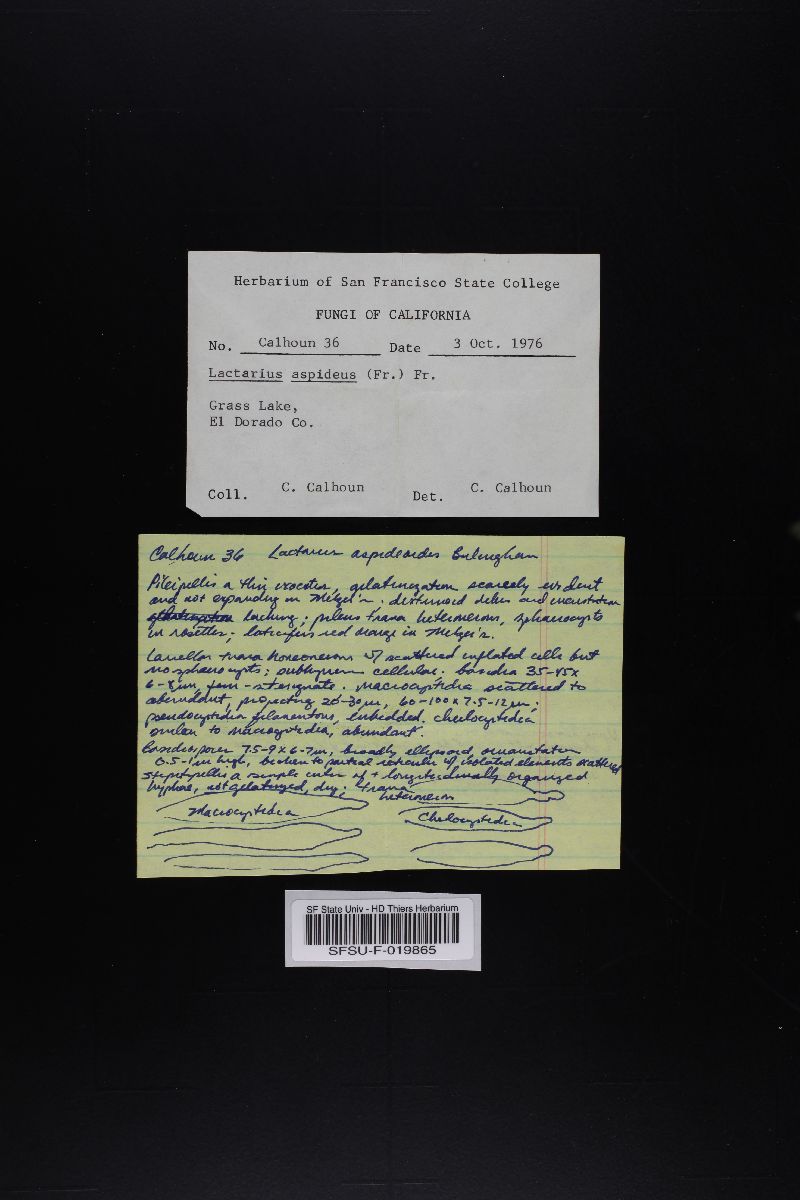 Herbarium of San Francisco State College
FUNGI OF CALIFORNIA
No. Calhoun 36 Date 3 Oct. 1976
Lactarius aspideus (Fr.) Fr.
Grass Lake,
El Dorado Co.
Coll. C. Calhoun Det. C. Calhoun
Calhoun 36 Lactarius aspideoides Burlingham
Pileipellis a thin ixocutis, gelatinization scarcely evident
and not expanding in Melzer's. differentiated and incrustation
lacking; pileus trama heteromerous, sphaerocysts
in rosettes; laticifers red orange in Melzer's.
Lamellar trama homoiomerous w/ scattered inflated cells but
no sphaerocysts; subhymenium cellular. basidia 35-45 x
6-8 µm, four-sterigmate. Macrocystidia scattered to
abundant, projecting 20-30 µm, 60-100 x 7.5-12 µm;
pseudocystidia filamentous, embedded. cheilocystidia
similar to macrocystidia, abundant.
Basidiospores 7.5-9 x 6-7 µm, broadly ellipsoid, ornamentation
0.5-1 µm high, broken to partial reticulum w/ isolated elements scattered
stipitipellis a simple cutis of ± longitudinally organized
hyphae, not gelatinized, dry. trama
heteromerous
Macrocystidia
Cheilocystidia
SF State Univ - HD Thiers Herbarium
SFSU-F-019865